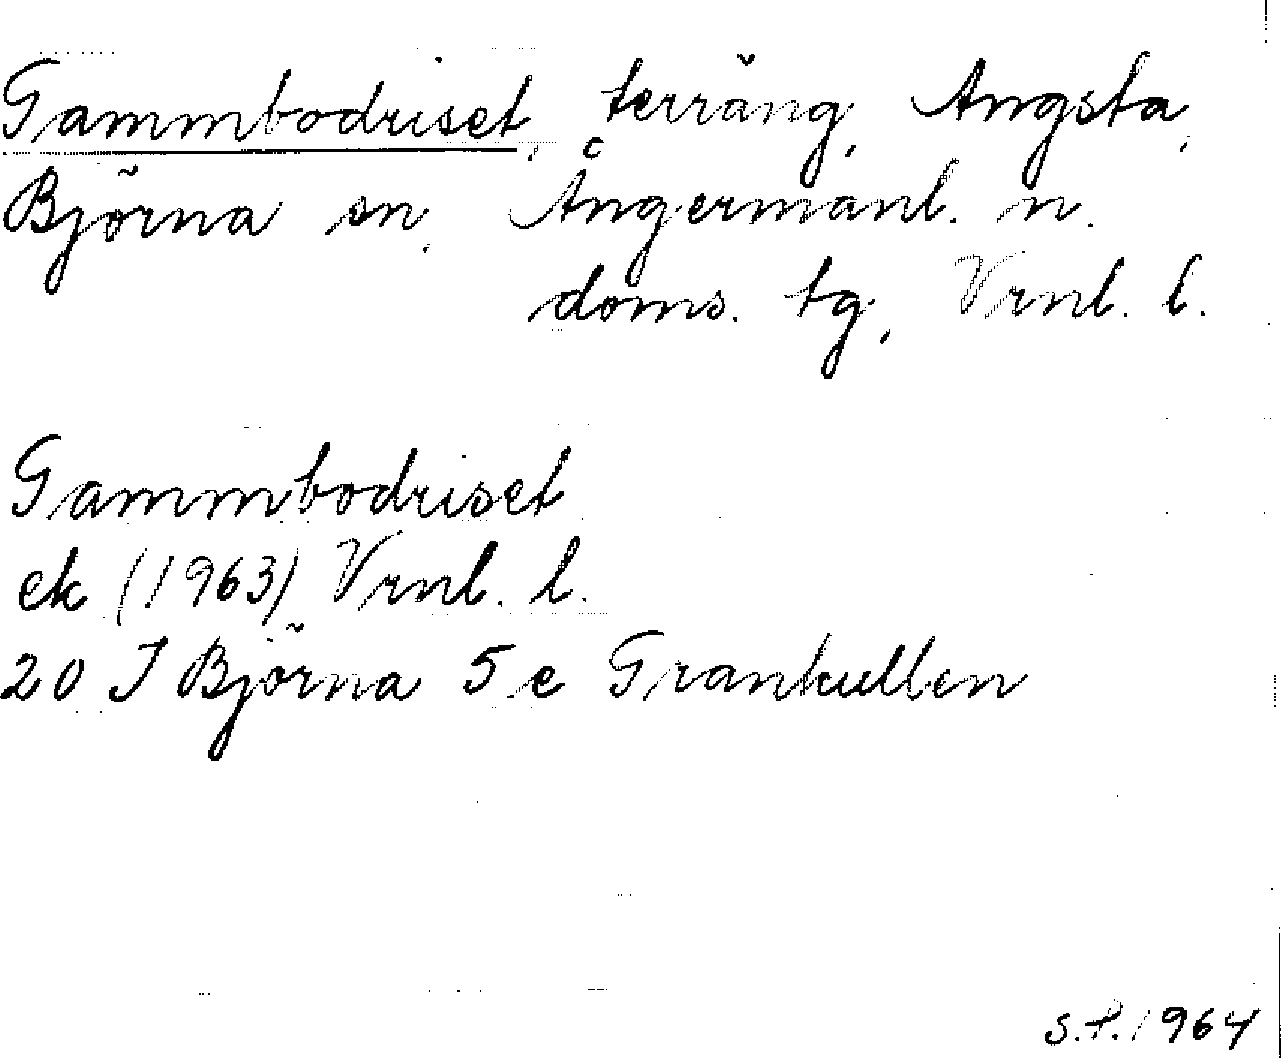 Gammbodriset, terräng, Angsta,
Björna sn, Ångermanl. n.
doms. tg, Vrnl. l.
Gammbodriset
ek (1963) Vrnl. l.
20 I Björna 5 e Grankullen
S.P. 1964